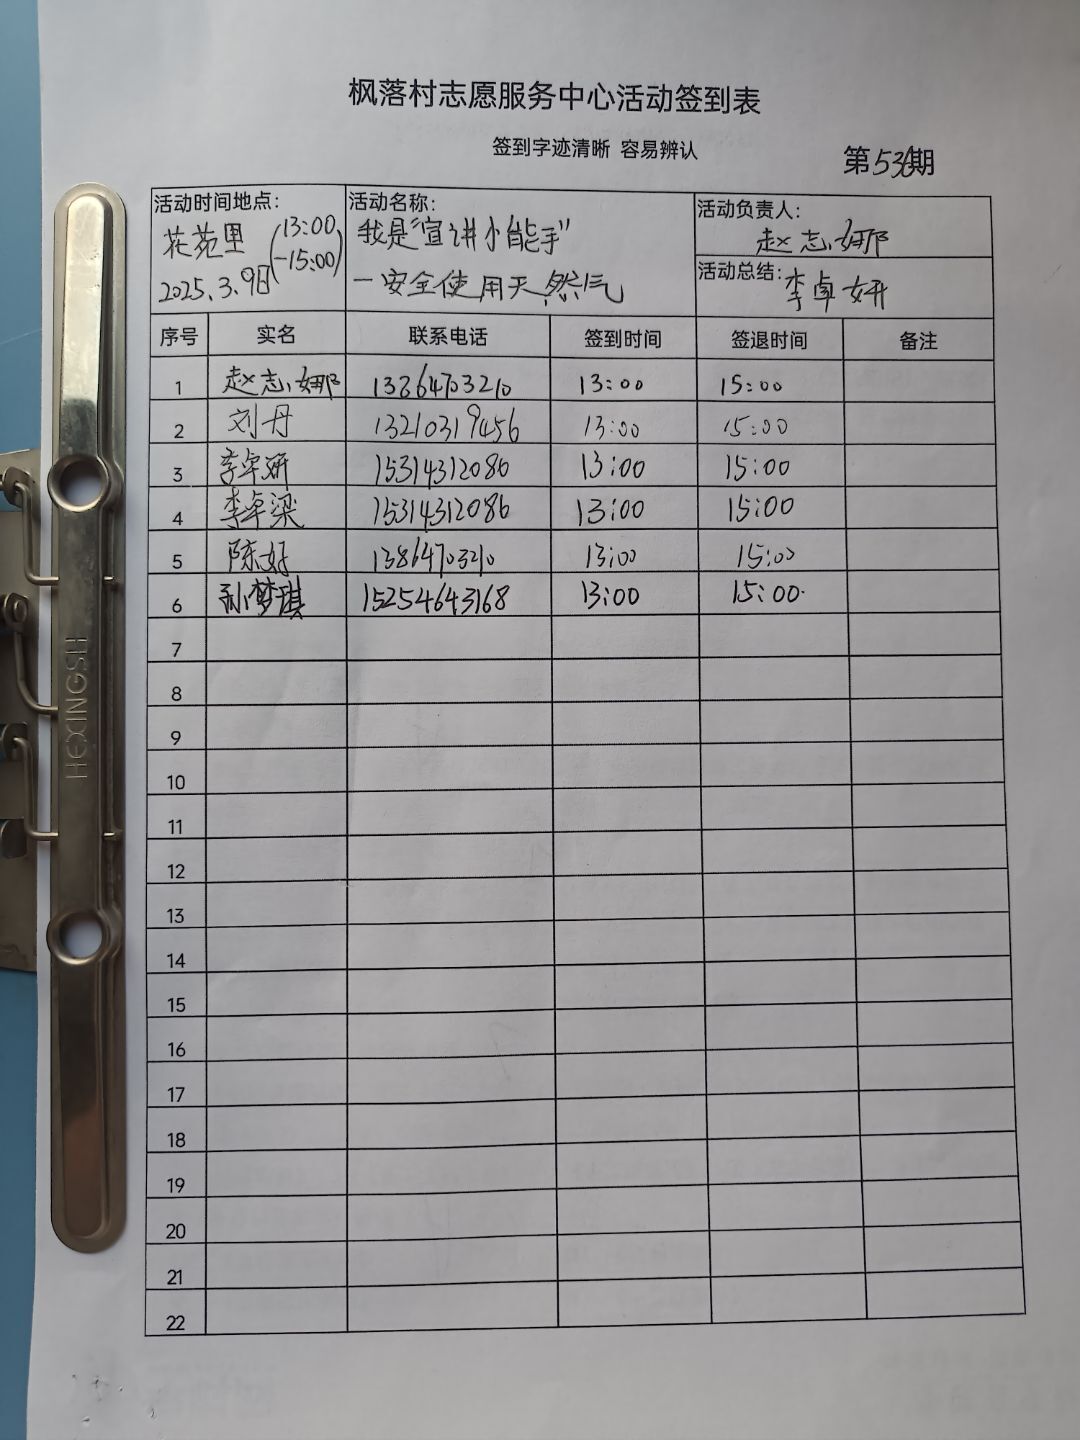 枫落村志愿服务中心活动签到表
签到字迹清晰 容易辨认
第536期
活动时间地点: 花苑里 (13:00-15:00) 2025.3.9日
活动名称: 我是"宣讲小能手" —安全使用天然气
活动负责人: 赵志娜
活动总结: 李卓妍
序号 实名 联系电话 签到时间 签退时间 备注
1 赵志娜 13864703210 13:00 15:00
2 刘丹 13210319456 13:00 15:00
3 李卓妍 15314312086 13:00 15:00
4 李卓梁 15314312086 13:00 15:00
5 陈好 13864703210 13:00 15:00
6 孙梦琪 15254643168 13:00 15:00
7
8
9
10
11
12
13
14
15
16
17
18
19
20
21
22
HEXINGSH